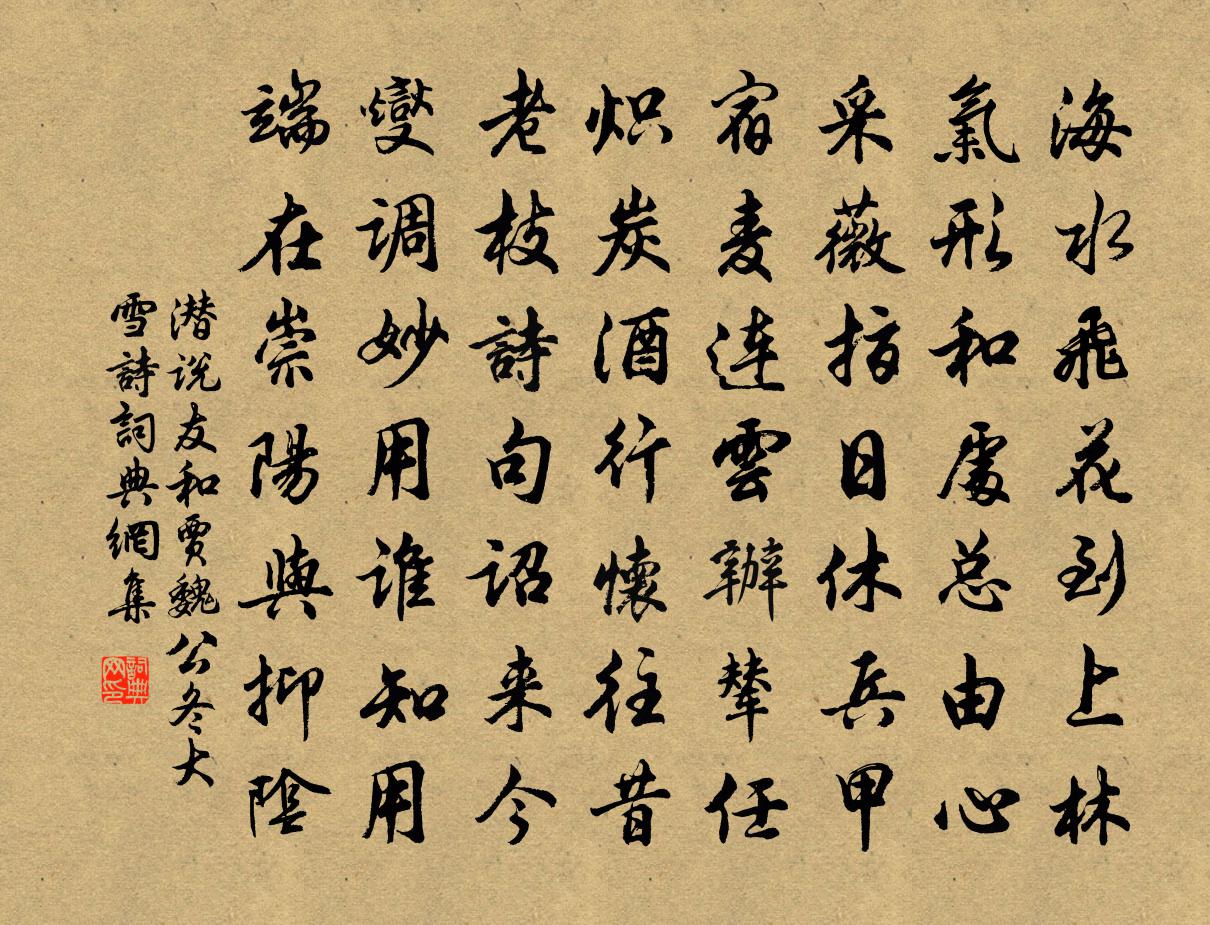 海水飛花到上林
氣形和處总由心
采薇指日休兵甲
宿麦連雲辦輦任
炽炭酒行懷往昔
老枝詩句詔来今
燮調妙用谁知用
端在崇陽與抑陰
潜说友和贾魏公冬大
雪詩詞典網集
詞典网印